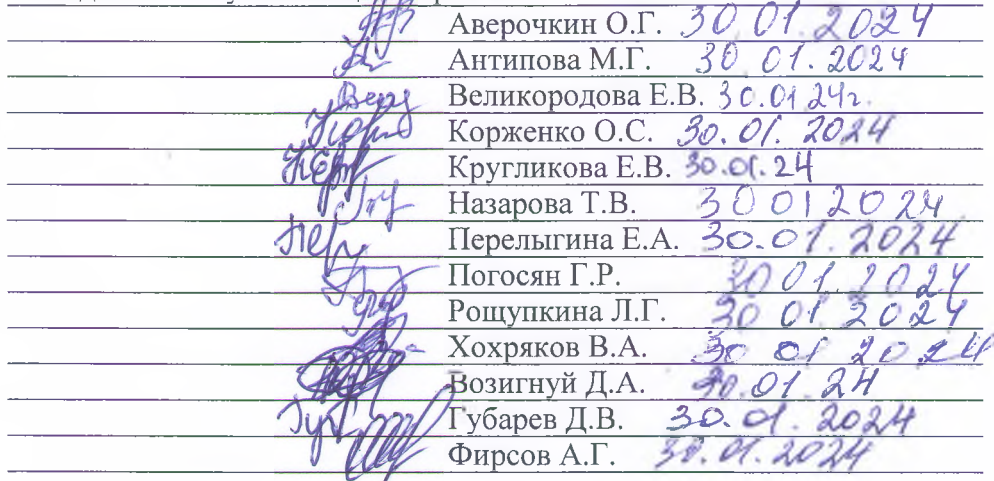 Аверочкин О.Г. 30.01.2024
Антипова М.Г. 30.01.2024
Великородова Е.В. 30.01.24г.
Корженко О.С. 30.01.2024
Кругликова Е.В. 30.01.24
Назарова Т.В. 30 01 20 24
Перелыгина Е.А. 30.01.2024
Погосян Г.Р. 30 01 2024
Рощупкина Л.Г. 30 01 2024
Хохряков В.А. 30 01 2024
Возигнуй Д.А. 30.01.24
Губарев Д.В. 30.01.2024
Фирсов А.Г. 30.01.2024